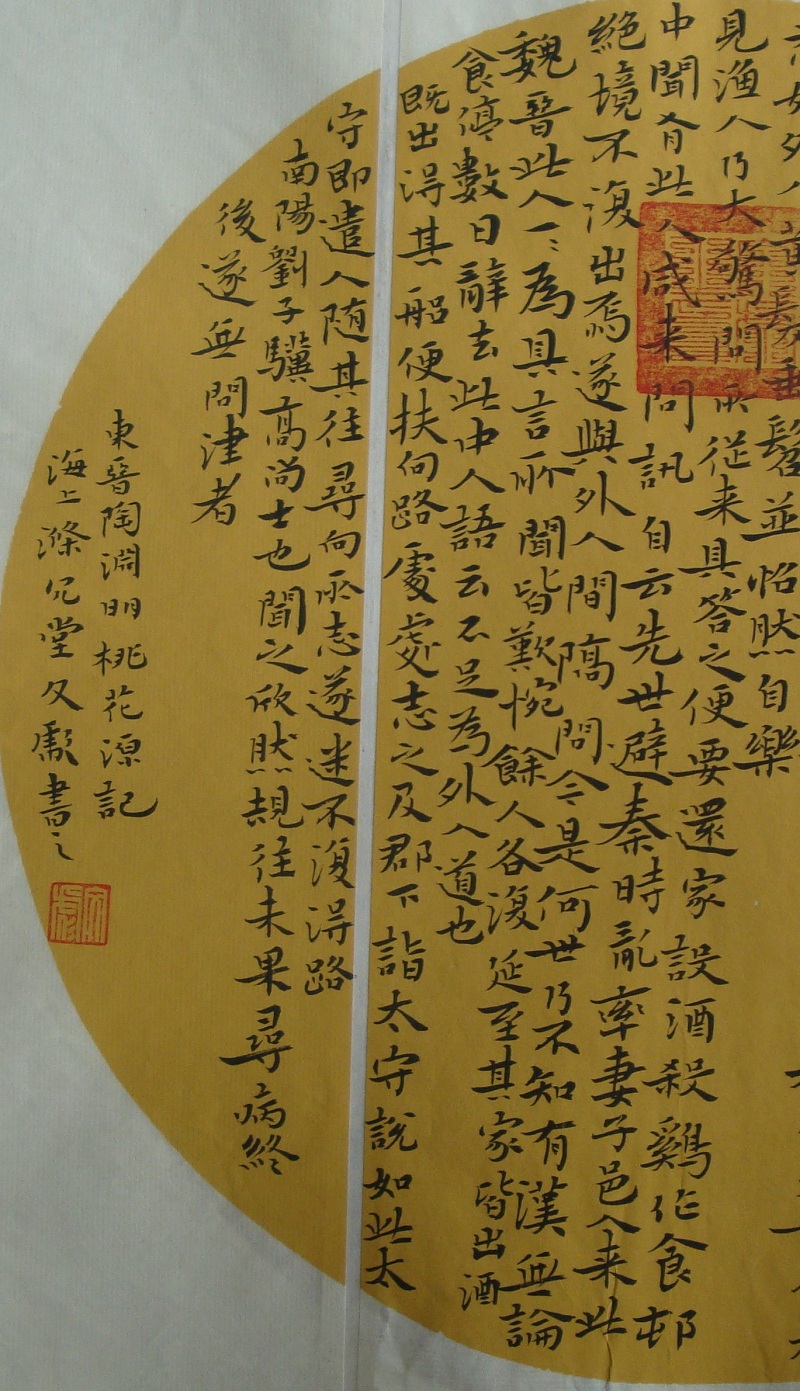 如外人黃髮垂髫並怡然自樂
見漁人乃大驚問所從来具答之便要還家設酒殺鷄作食邨
中聞有此人咸来問訊自云先世避秦時亂率妻子邑人来此
絕境不復出焉遂與外人間隔問今是何世乃不知有漢無論
魏晉此人一〻為具言所聞皆歎惋餘人各復延至其家皆出酒
食停數日辭去此中人語云不足為外人道也
既出得其船便扶向路處處志之及郡下詣太守說如此太
守即遣人随其往尋向所志遂迷不復得路
南陽劉子驥高尚士也聞之欣然規往未果尋病終
後遂無問津者
東晉陶淵明桃花源記
海上滌冗堂文書之